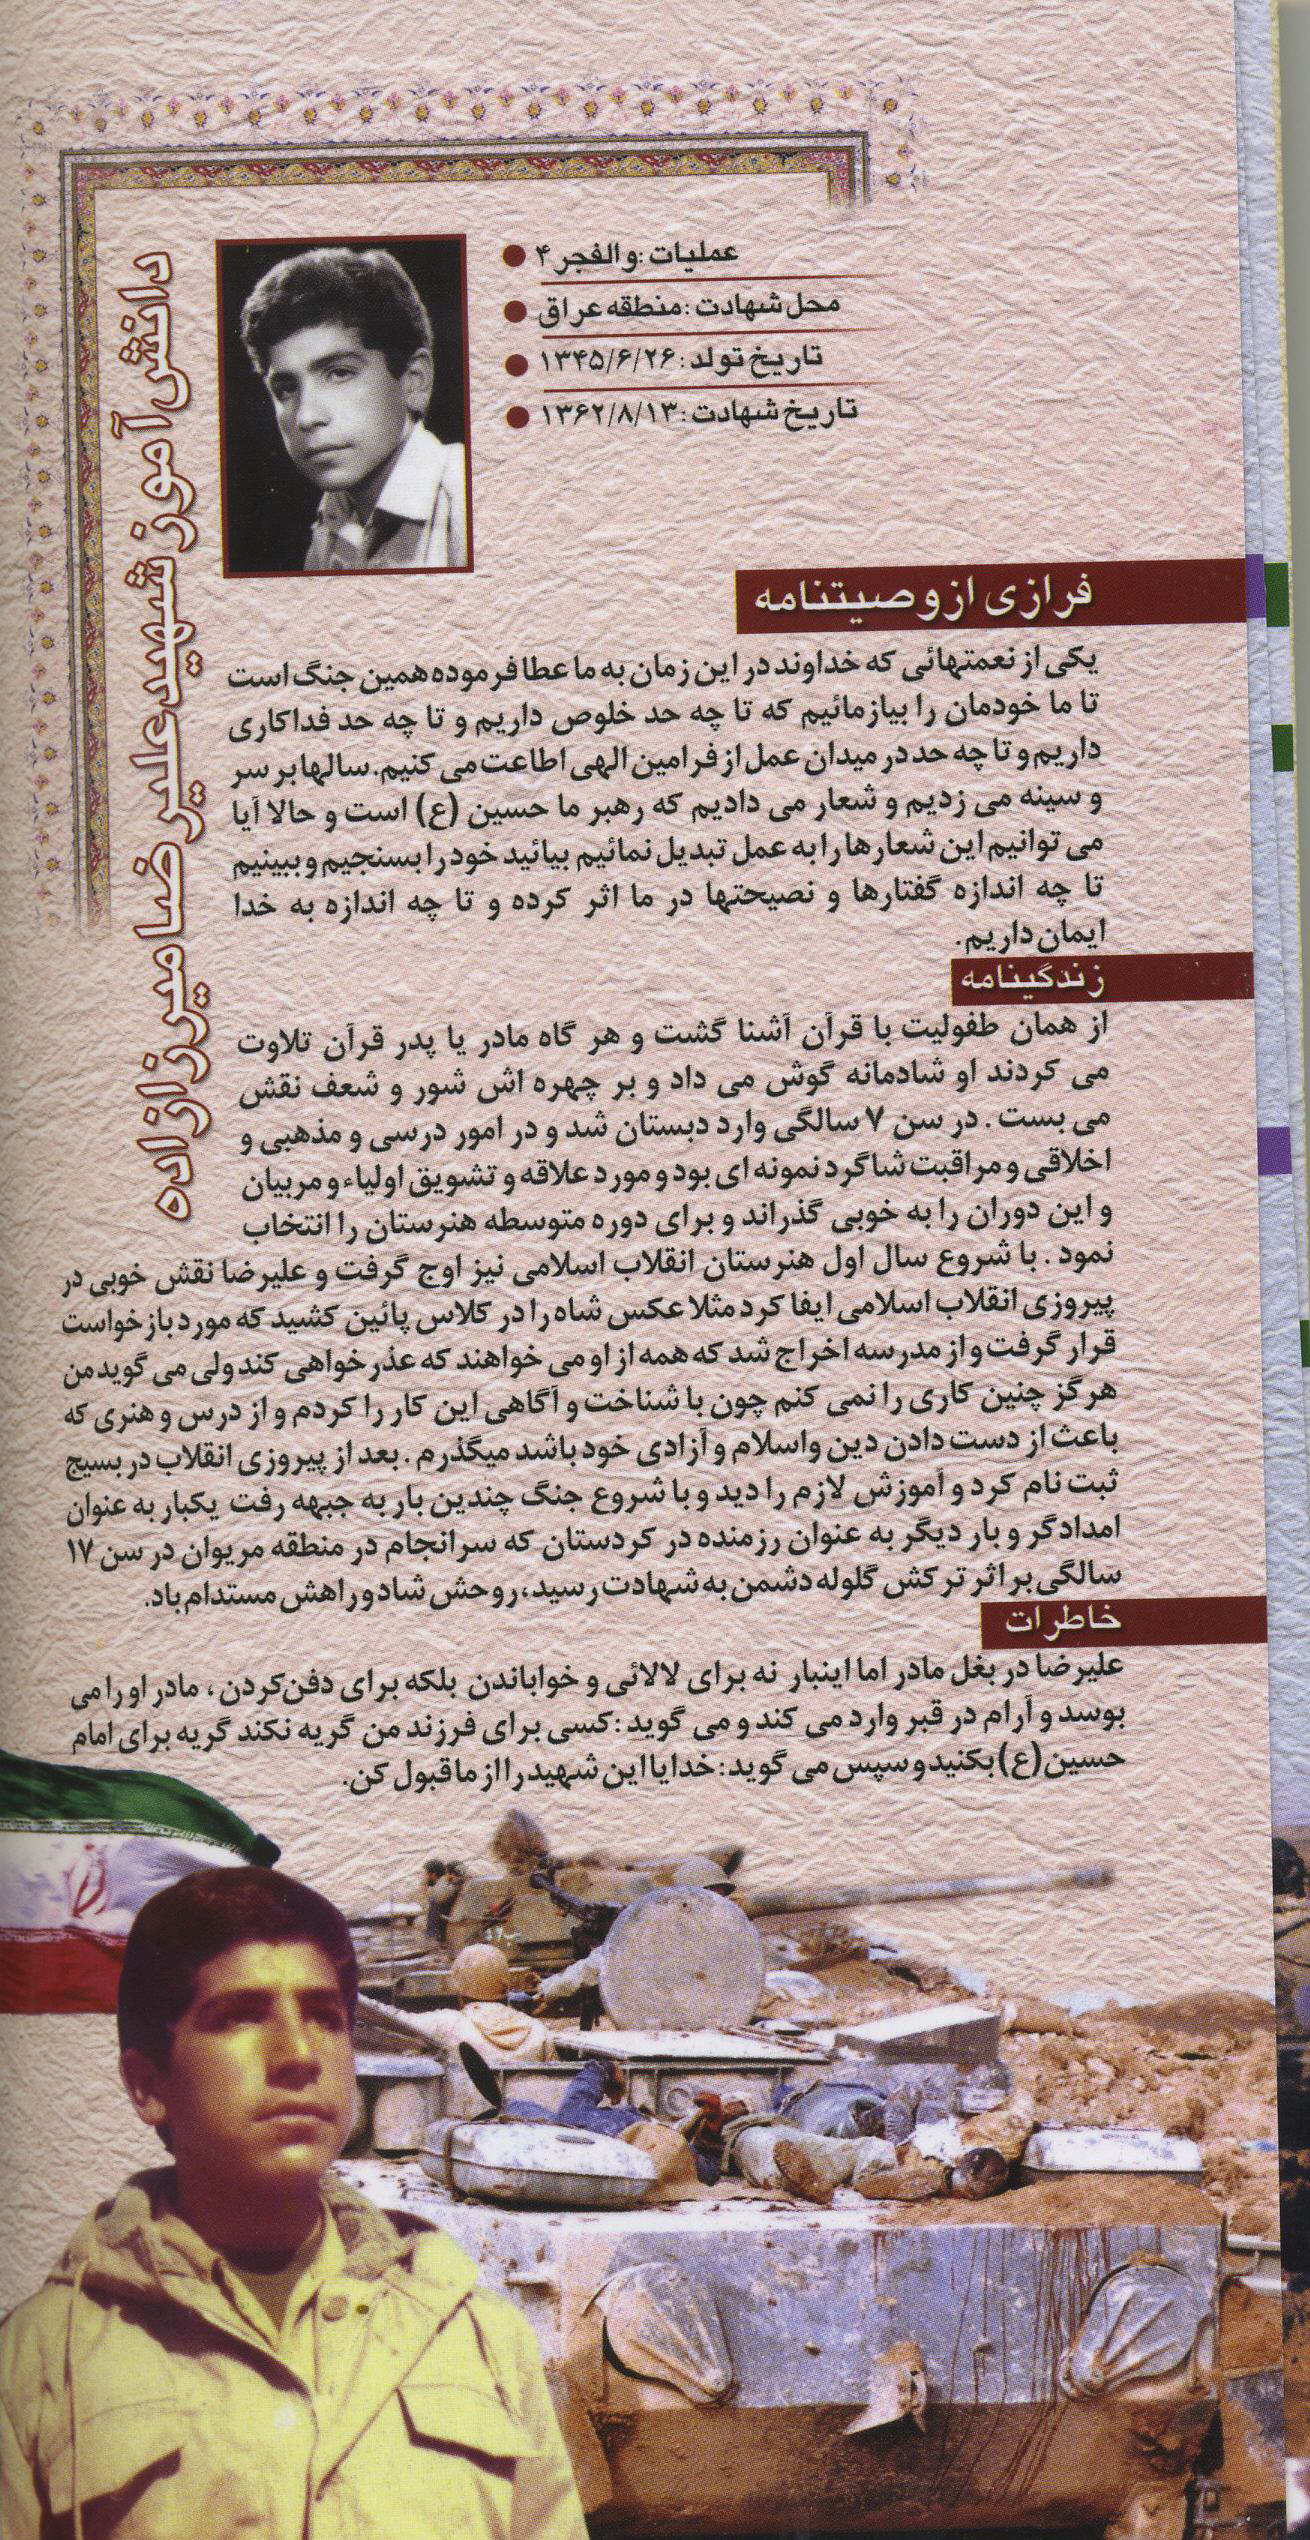 دانش آموز شهید علیرضا میرزازاده
عملیات :والفجر ۴
محل شهادت :منطقه عراق
تاریخ تولد : ۱۳۴۵/۶/۲۶
تاریخ شهادت :۱۳۶۲/۸/۱۳
فرازی از وصیتنامه
یکی از نعمتهائی که خداوند در این زمان به ما عطا فرموده همین جنگ است
تا ما خودمان را بیازمائیم که تا چه حد خلوص داریم و تا چه حد فداکاری
داریم و تا چه حد در میدان عمل از فرامین الهی اطاعت می کنیم. سالها بر سر
و سینه می زدیم و شعار می دادیم که رهبر ما حسین (ع) است و حالا آیا
می توانیم این شعارها را به عمل تبدیل نمائیم بیائید خود را بسنجیم و ببینیم
تا چه اندازه گفتارها و نصیحتها در ما اثر کرده و تا چه اندازه به خدا
ایمان داریم.
زندگینامه
از همان طفولیت با قرآن آشنا گشت و هر گاه مادر یا پدر قرآن تلاوت
می کردند او شادمانه گوش می داد و بر چهره اش شور و شعف نقش
می بست . در سن ۷ سالگی وارد دبستان شد و در امور درسی و مذهبی و
اخلاقی و مراقبت شاگرد نمونه ای بود و مورد علاقه و تشویق اولیاء و مربیان
و این دوران را به خوبی گذراند و برای دوره متوسطه هنرستان را انتخاب
نمود . با شروع سال اول هنرستان انقلاب اسلامی نیز اوج گرفت و علیرضا نقش خوبی در
پیروزی انقلاب اسلامی ایفا کرد مثلا عکس شاه را در کلاس پائین کشید که مورد بازخواست
قرار گرفت و از مدرسه اخراج شد که همه از او می خواهند که عذر خواهی کند ولی می گوید من
هرگز چنین کاری را نمی کنم چون با شناخت و آگاهی این کار را کردم و از درس و هنری که
باعث از دست دادن دین واسلام و آزادی خود باشد میگذرم . بعد از پیروزی انقلاب در بسیج
ثبت نام کرد و آموزش لازم را دید و با شروع جنگ چندین بار به جبهه رفت یکبار به عنوان
امدادگر و بار دیگر به عنوان رزمنده در کردستان که سرانجام در منطقه مریوان در سن ۱۷
سالگی بر اثر ترکش گلوله دشمن به شهادت رسید، روحش شاد و راهش مستدام باد.
خاطرات
علیرضا در بغل مادر اما اینبار نه برای لالائی و خواباندن بلکه برای دفن کردن ، مادر او را می
بوسد و آرام در قبر وارد می کند و می گوید :کسی برای فرزند من گریه نکند گریه برای امام
حسین(ع)بکنید و سپس می گوید: خدایا این شهید را از ما قبول کن.